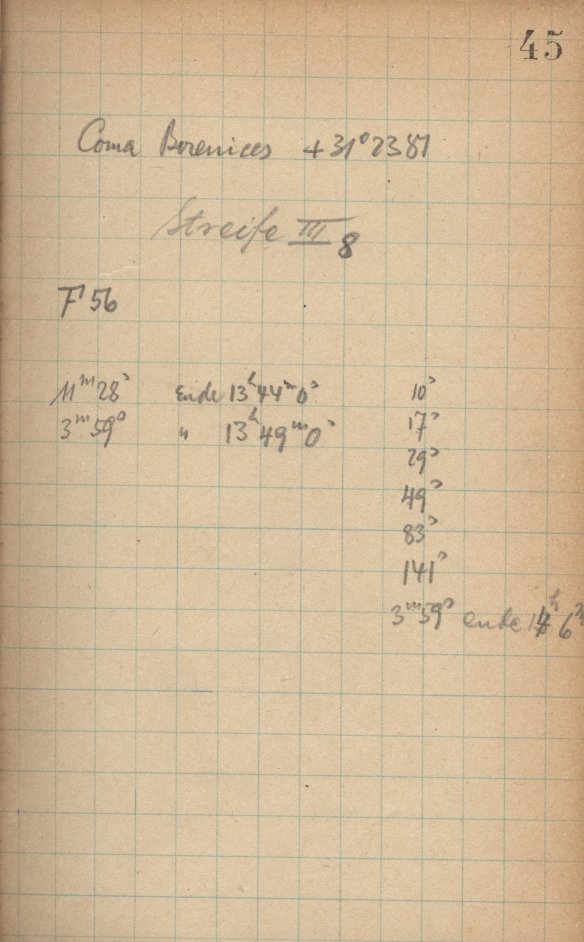 45
Coma Berenices +31°2387
Streife III 8
F 56
11ᵐ28ˢ Ende 13ʰ44ᵐ0ˢ 10ˢ
3ᵐ59ˢ " 13ʰ49ᵐ0ˢ 17ˢ
29ˢ
49ˢ
83ˢ
141ˢ
3ᵐ59ˢ ende 14ʰ 6ᵐ